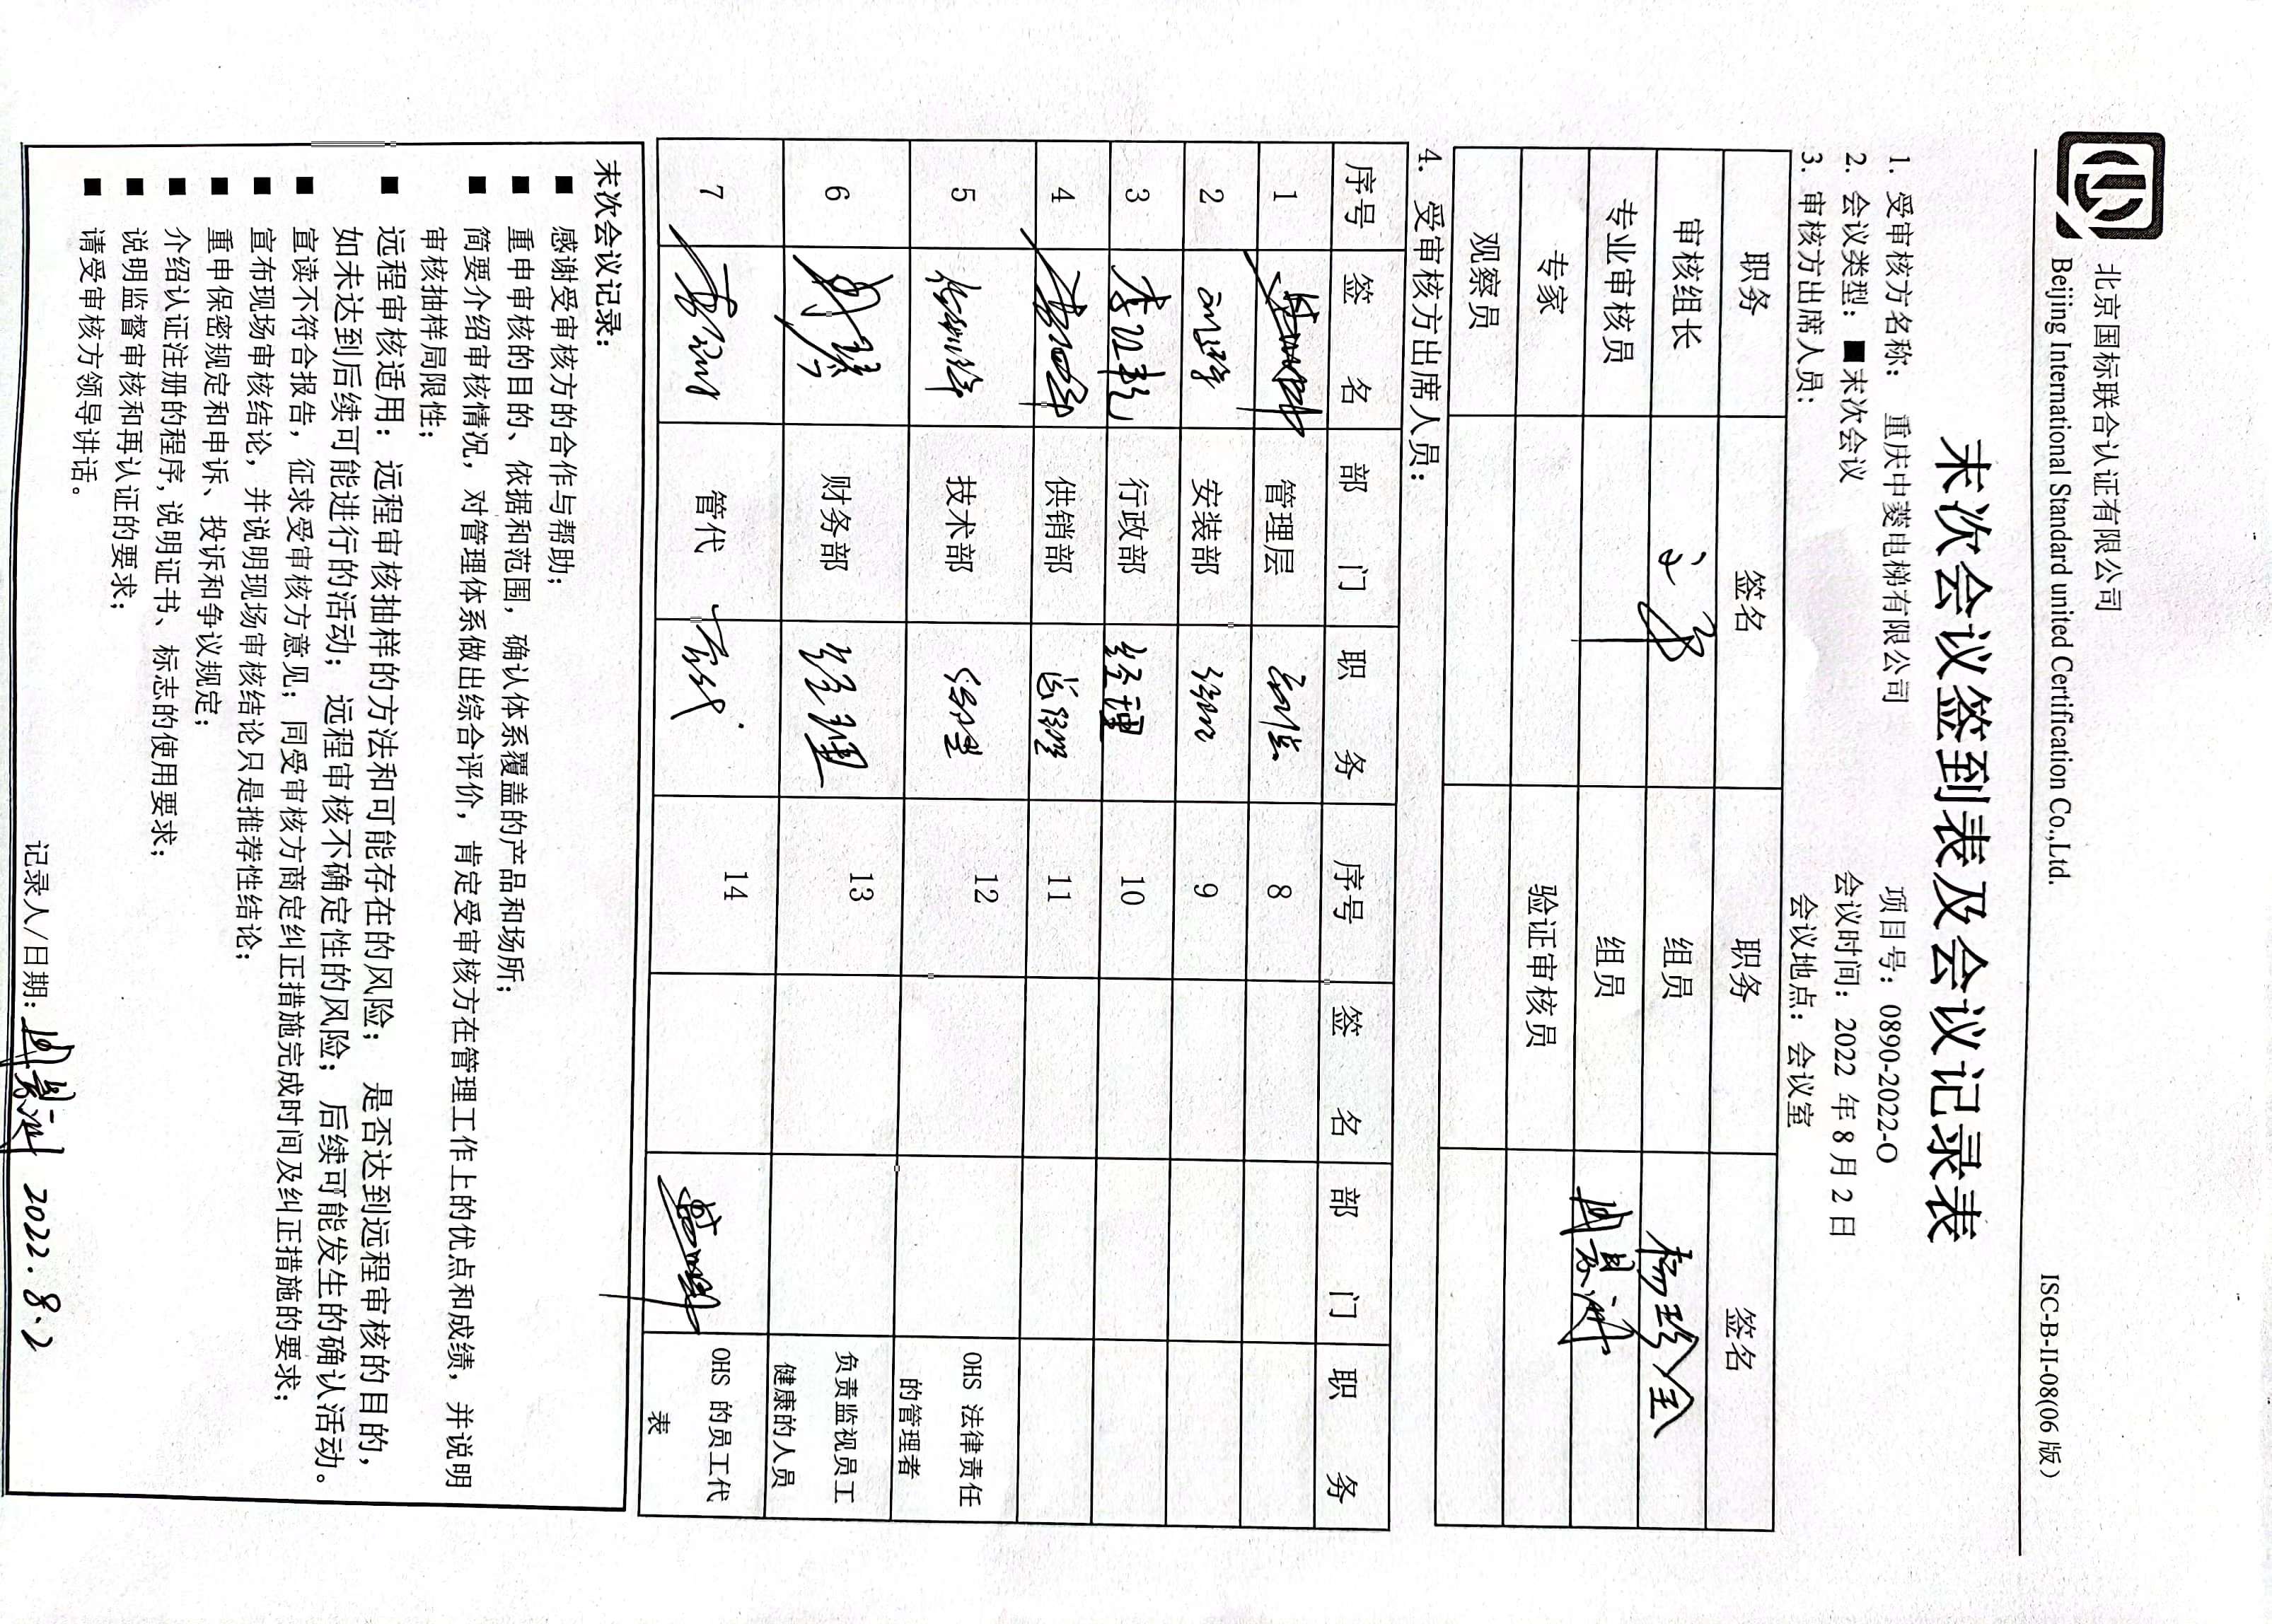 北京国标联合认证有限公司
Beijing International Standard united Certification Co.,Ltd.
ISC-B-II-08(06 版)
末次会议签到表及会议记录表
1. 受审核方名称: 重庆中菱电梯有限公司 项目号: 0890-2022-O
2. 会议类型: ■末次会议 会议时间: 2022 年 8 月 2 日
3. 审核方出席人员: 会议地点: 会议室
职务 签名 职务 签名
审核组长 组员 杨珍全
专业审核员 组员
专家 验证审核员
观察员
4. 受审核方出席人员:
序号 签 名 部 门 职 务 序号 签 名 部 门 职 务
1 管理层 8
2 安装部 9
3 行政部 经理 10
4 供销部 11
5 技术部 12 OHS 法律责任的管理者
6 财务部 经理 13 负责监视员工健康的人员
7 管代 14 OHS 的员工代表
末次会议记录:
■ 感谢受审核方的合作与帮助;
■ 重申审核的目的、依据和范围, 确认体系覆盖的产品和场所;
■ 简要介绍审核情况, 对管理体系做出综合评价, 肯定受审核方在管理工作上的优点和成绩, 并说明
审核抽样局限性;
■ 远程审核适用: 远程审核抽样的方法和可能存在的风险; 是否达到远程审核的目的,
如未达到后续可能进行的活动; 远程审核不确定性的风险; 后续可能发生的确认活动。
■ 宣读不符合报告, 征求受审核方意见; 同受审核方商定纠正措施完成时间及纠正措施的要求;
■ 宣布现场审核结论, 并说明现场审核结论只是推荐性结论;
■ 重申保密规定和申诉、投诉和争议规定;
■ 介绍认证注册的程序, 说明证书、标志的使用要求;
■ 说明监督审核和再认证的要求;
■ 请受审核方领导讲话。
记录人/日期: 2022.8.2